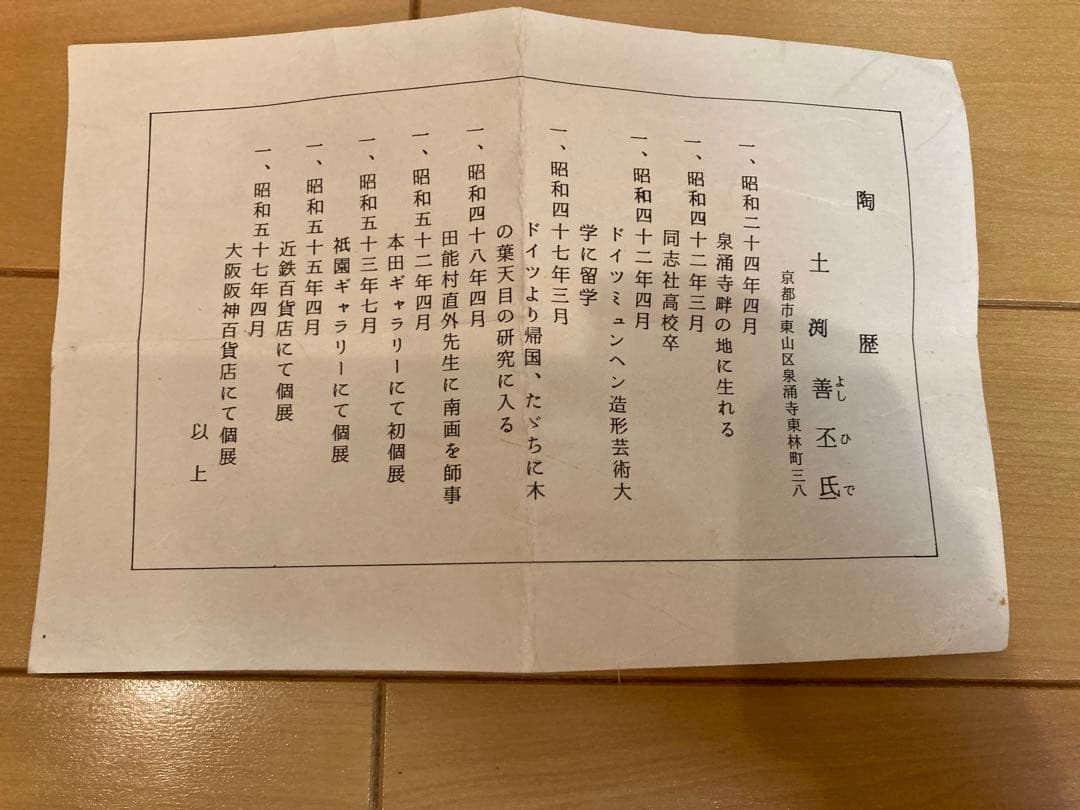 陶歴
土渕善丕氐
よしひで
京都市東山区泉涌寺東林町三八
一、昭和二十四年四月
泉涌寺畔の地に生れる
一、昭和四十二年三月
同志社高校卒
一、昭和四十二年四月
ドイツミュンヘン造形芸術大
学に留学
一、昭和四十七年三月
ドイツより帰国、たゞちに木
の葉天目の研究に入る
一、昭和四十八年四月
田能村直外先生に南画を師事
一、昭和五十二年四月
本田ギャラリーにて初個展
一、昭和五十三年七月
祇園ギャラリーにて個展
一、昭和五十五年四月
近鉄百貨店にて個展
一、昭和五十七年四月
大阪阪神百貨店にて個展
以上